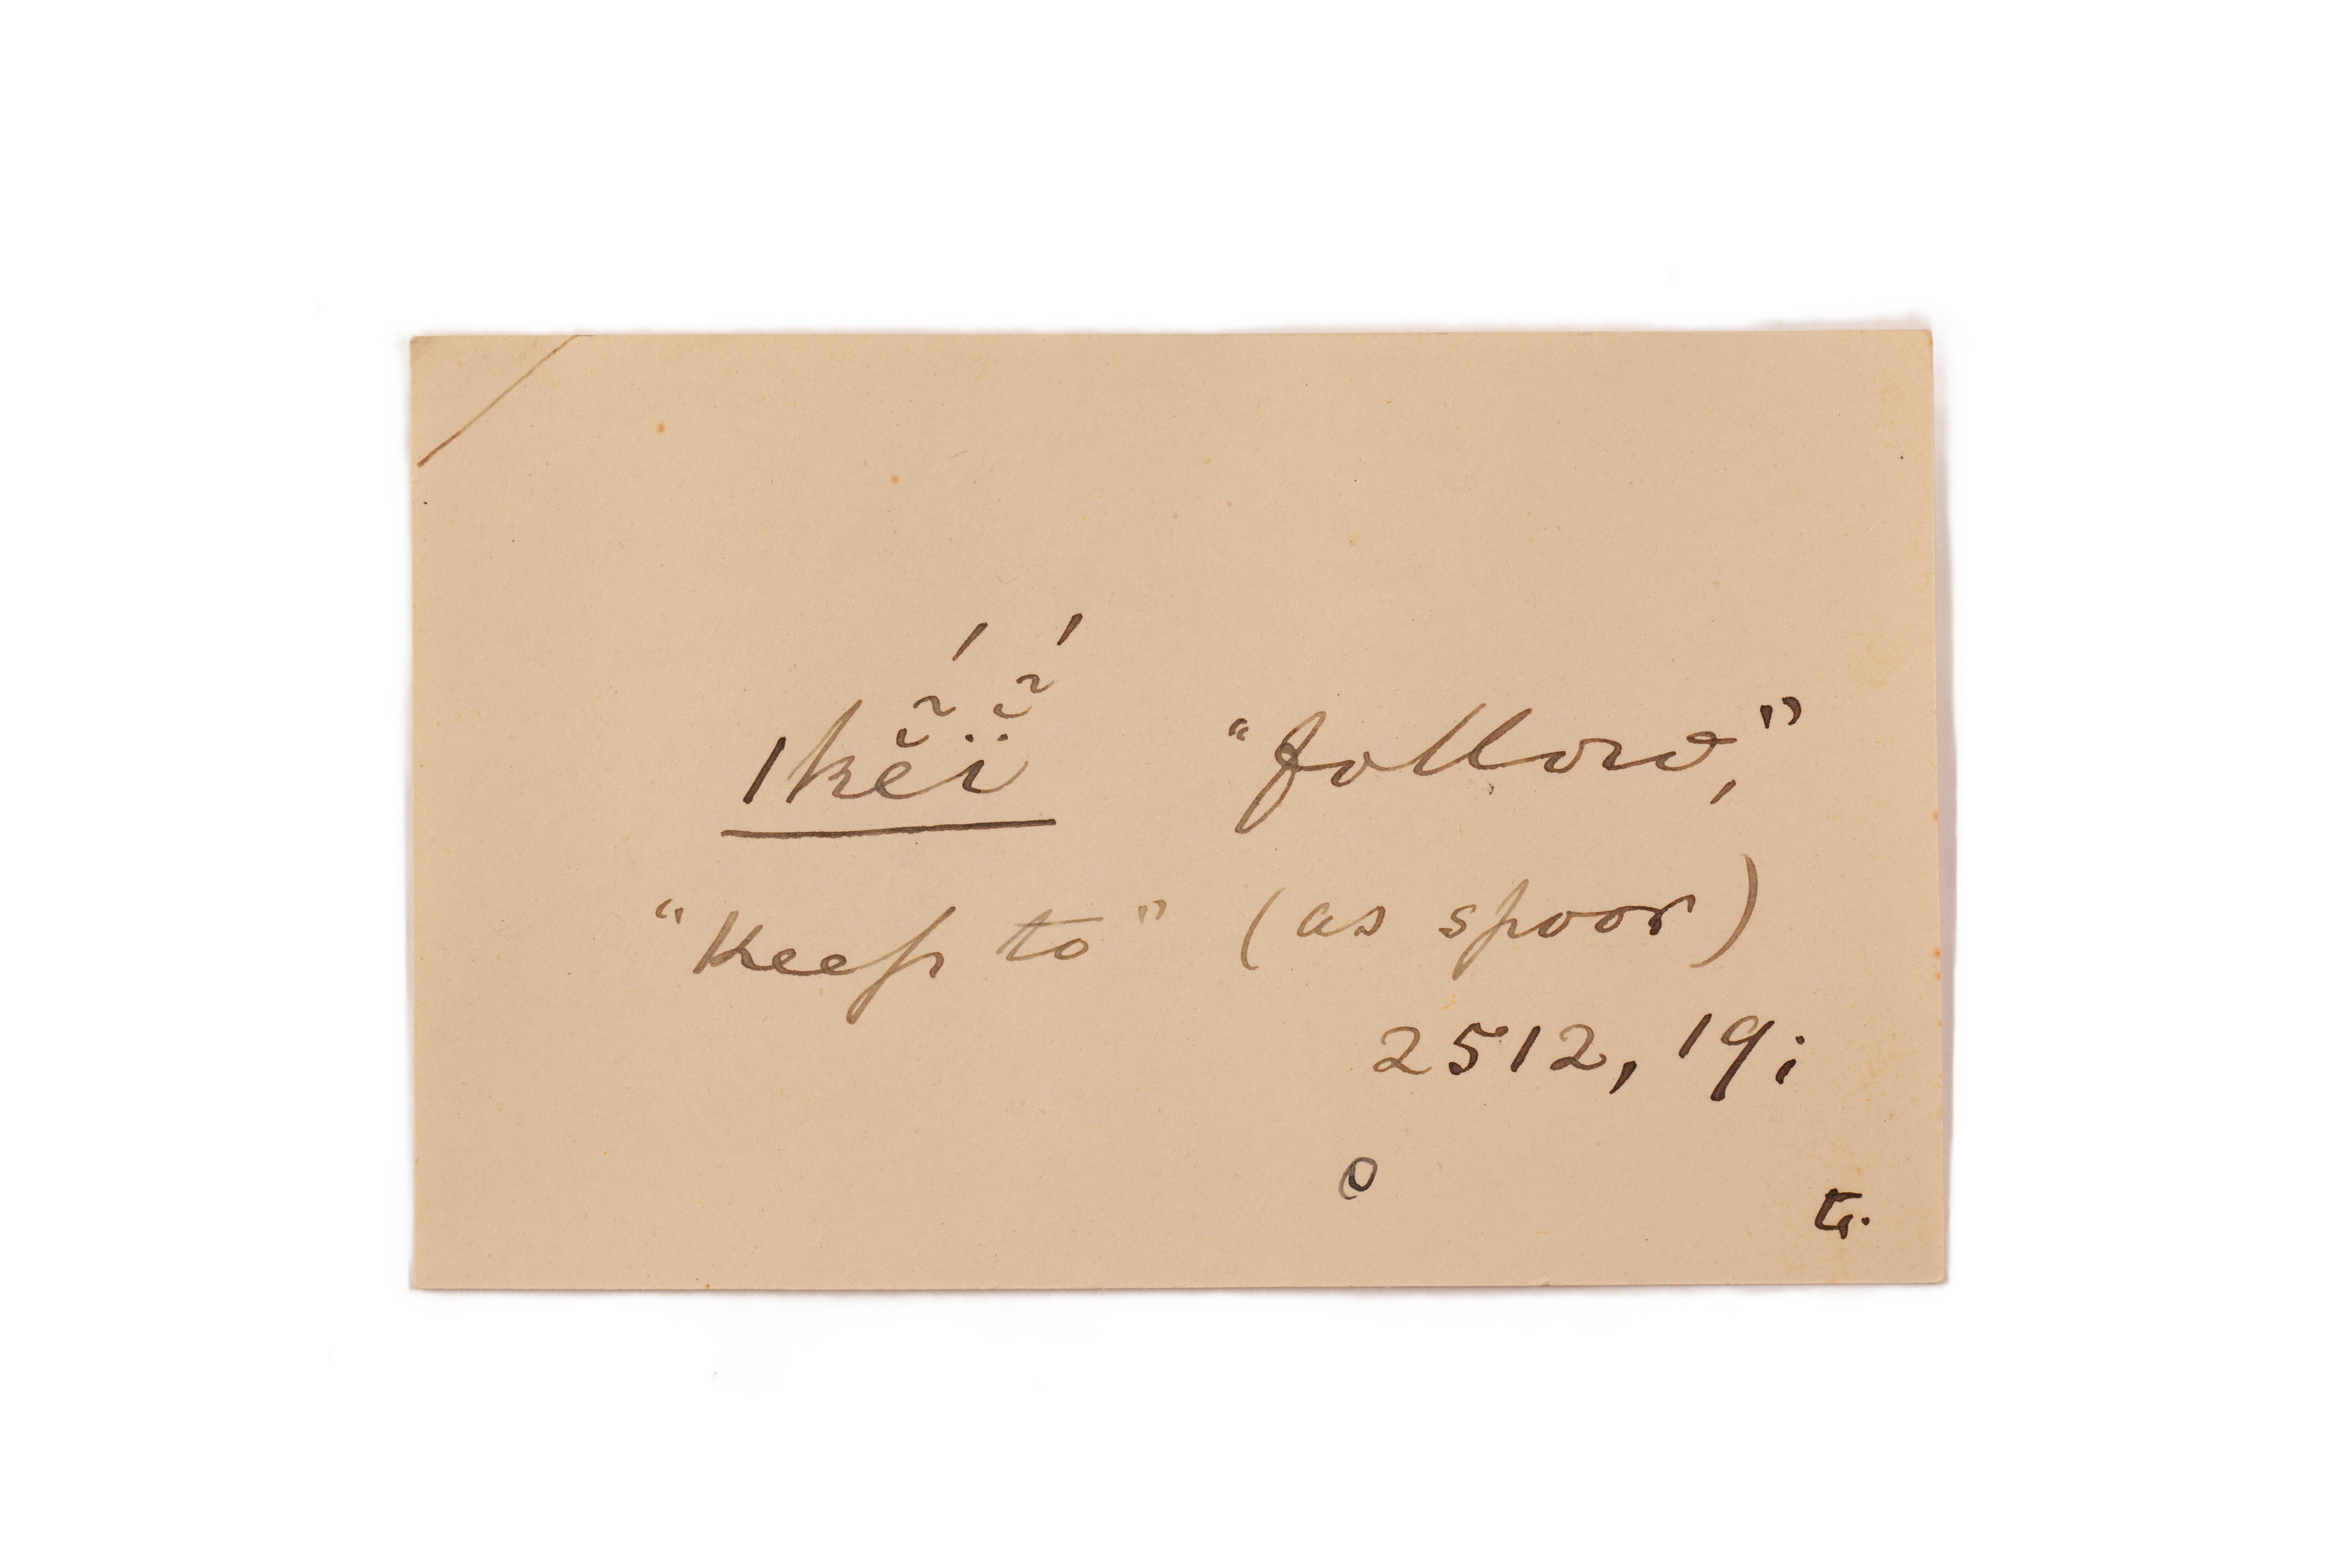 |kĕ̃́ĭ̈̃́ "follow,"
"keep to" (as spoor)
2512, 19;